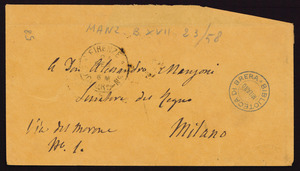 MANZ. B. XVII. 23/58
A Don Alessandro Manzoni
Senatore del Regno
Milano
Via del Morone
N.° 1.
BIBLIOTECA DI BRERA